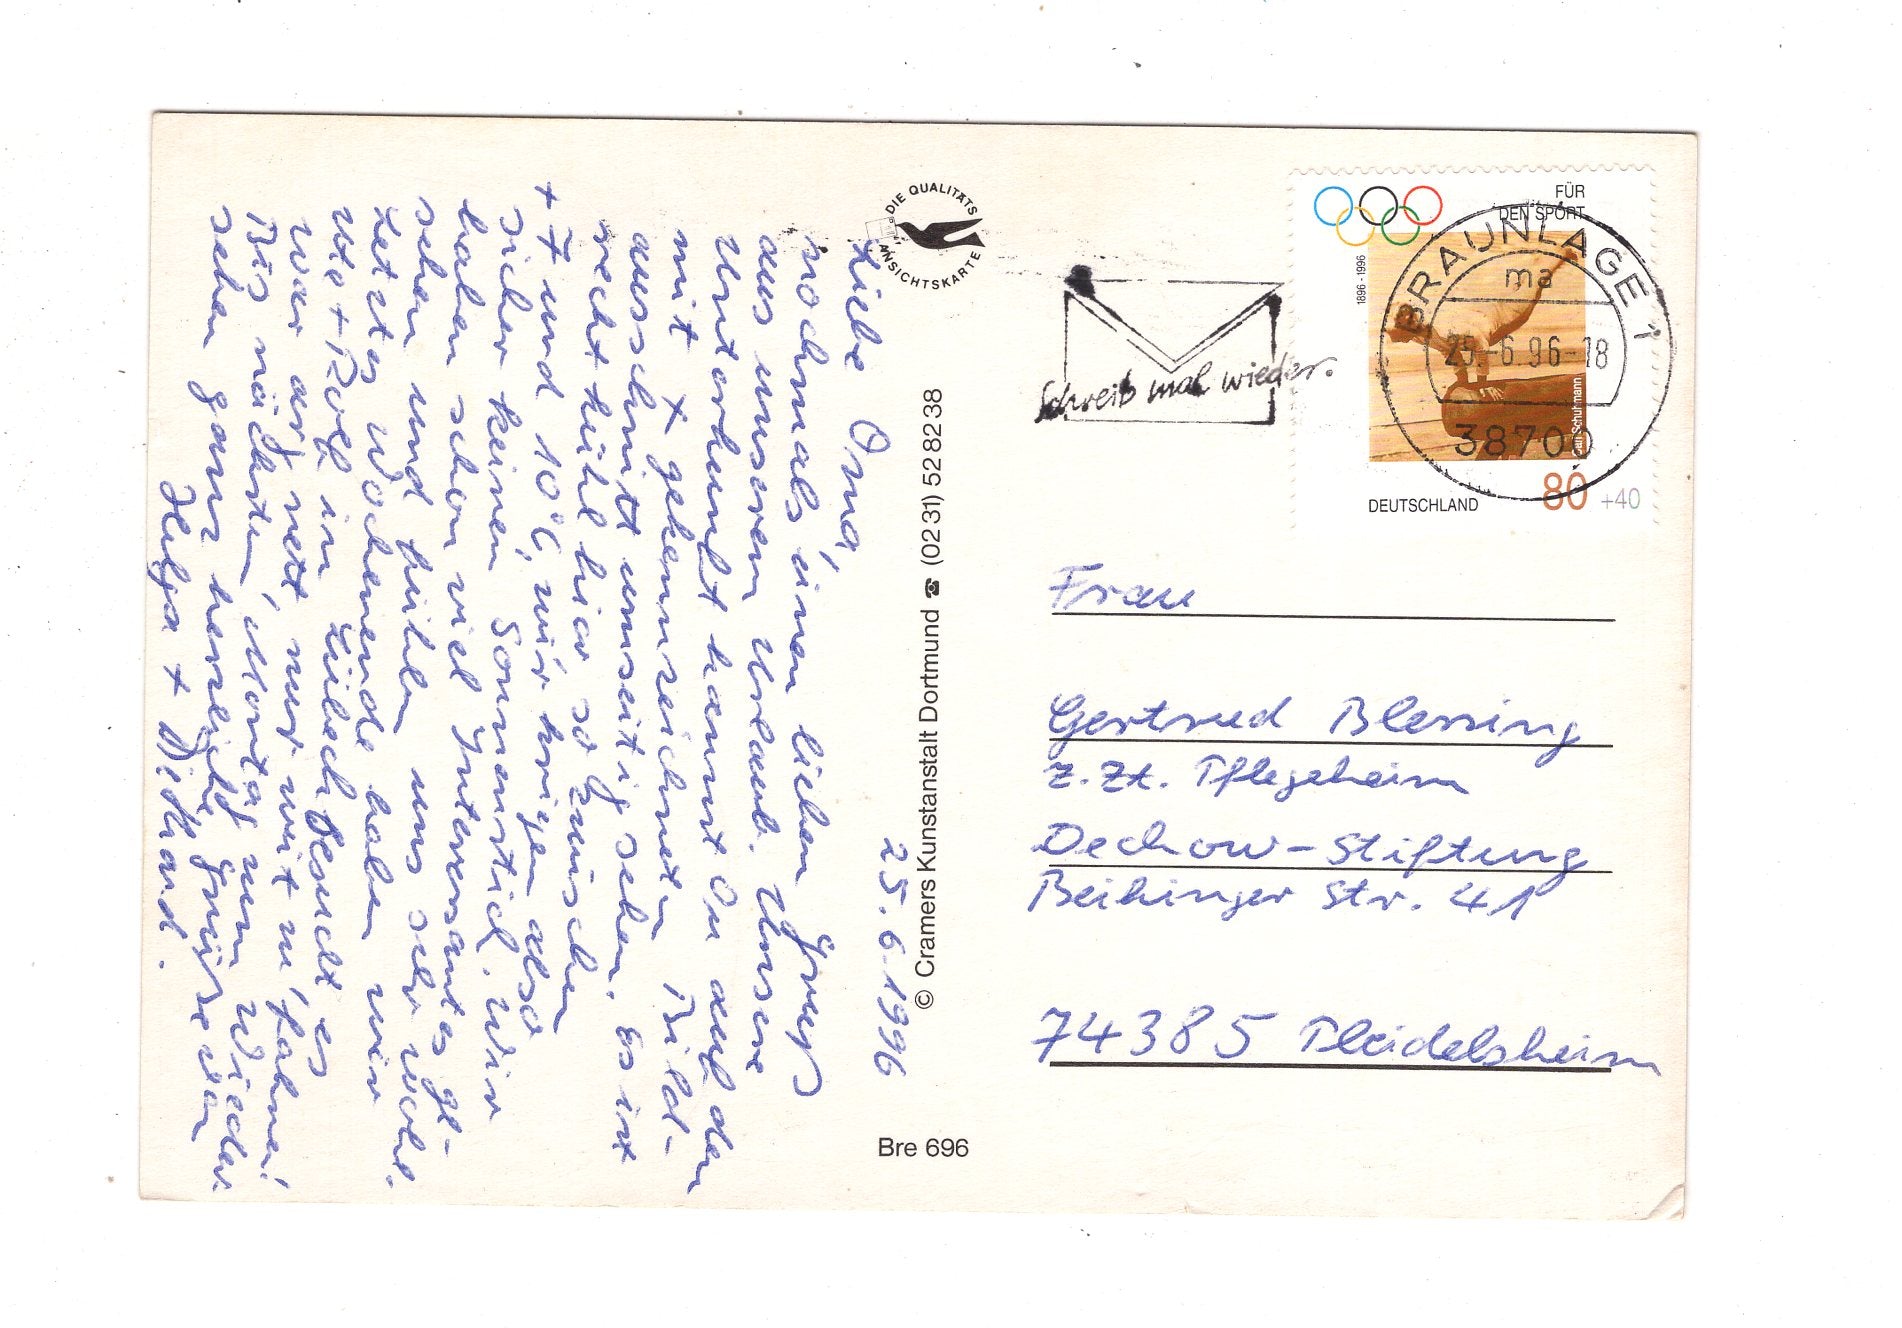 25.6.1996
Liebe Oma,
nochmals einen lieben Gruß
aus unserem Urlaub. Unsere
Unterkunft kannst Du auf dem
mit + gekennzeichneten Bild-
ausschnitt umseitig sehen. Es ist
recht kühl hier so zwischen
+ 7 und 10°C, wir kriegen also
sicher keinen Sonnenstich. Wir
haben schon viel Interessantes ge-
sehen und fühlen uns sehr wohl.
Letztes Wochenende haben wir
Ute + Rolf in Lübeck besucht es
war arg nett nur weit zu fahren!
Bis nächsten Montag zum Wieder-
sehen ganz herzliche Grüße von
Helga + Diethard.
DIE QUALITÄTS
ANSICHTSKARTE
© Cramers Kunstanstalt Dortmund ☎ (02 31) 52 82 38
Bre 696
Schreib mal wieder.
FÜR
DEN SPORT
1896 - 1996
Carl Schuhmann
DEUTSCHLAND
80 +40
BRAUNLAGE 1
ma
25.-6.96-18
38700
Frau
Gertrud Blessing
z. Zt. Pflegeheim
Dechow-Stiftung
Beihinger Str. 41
74385 Pleidelsheim